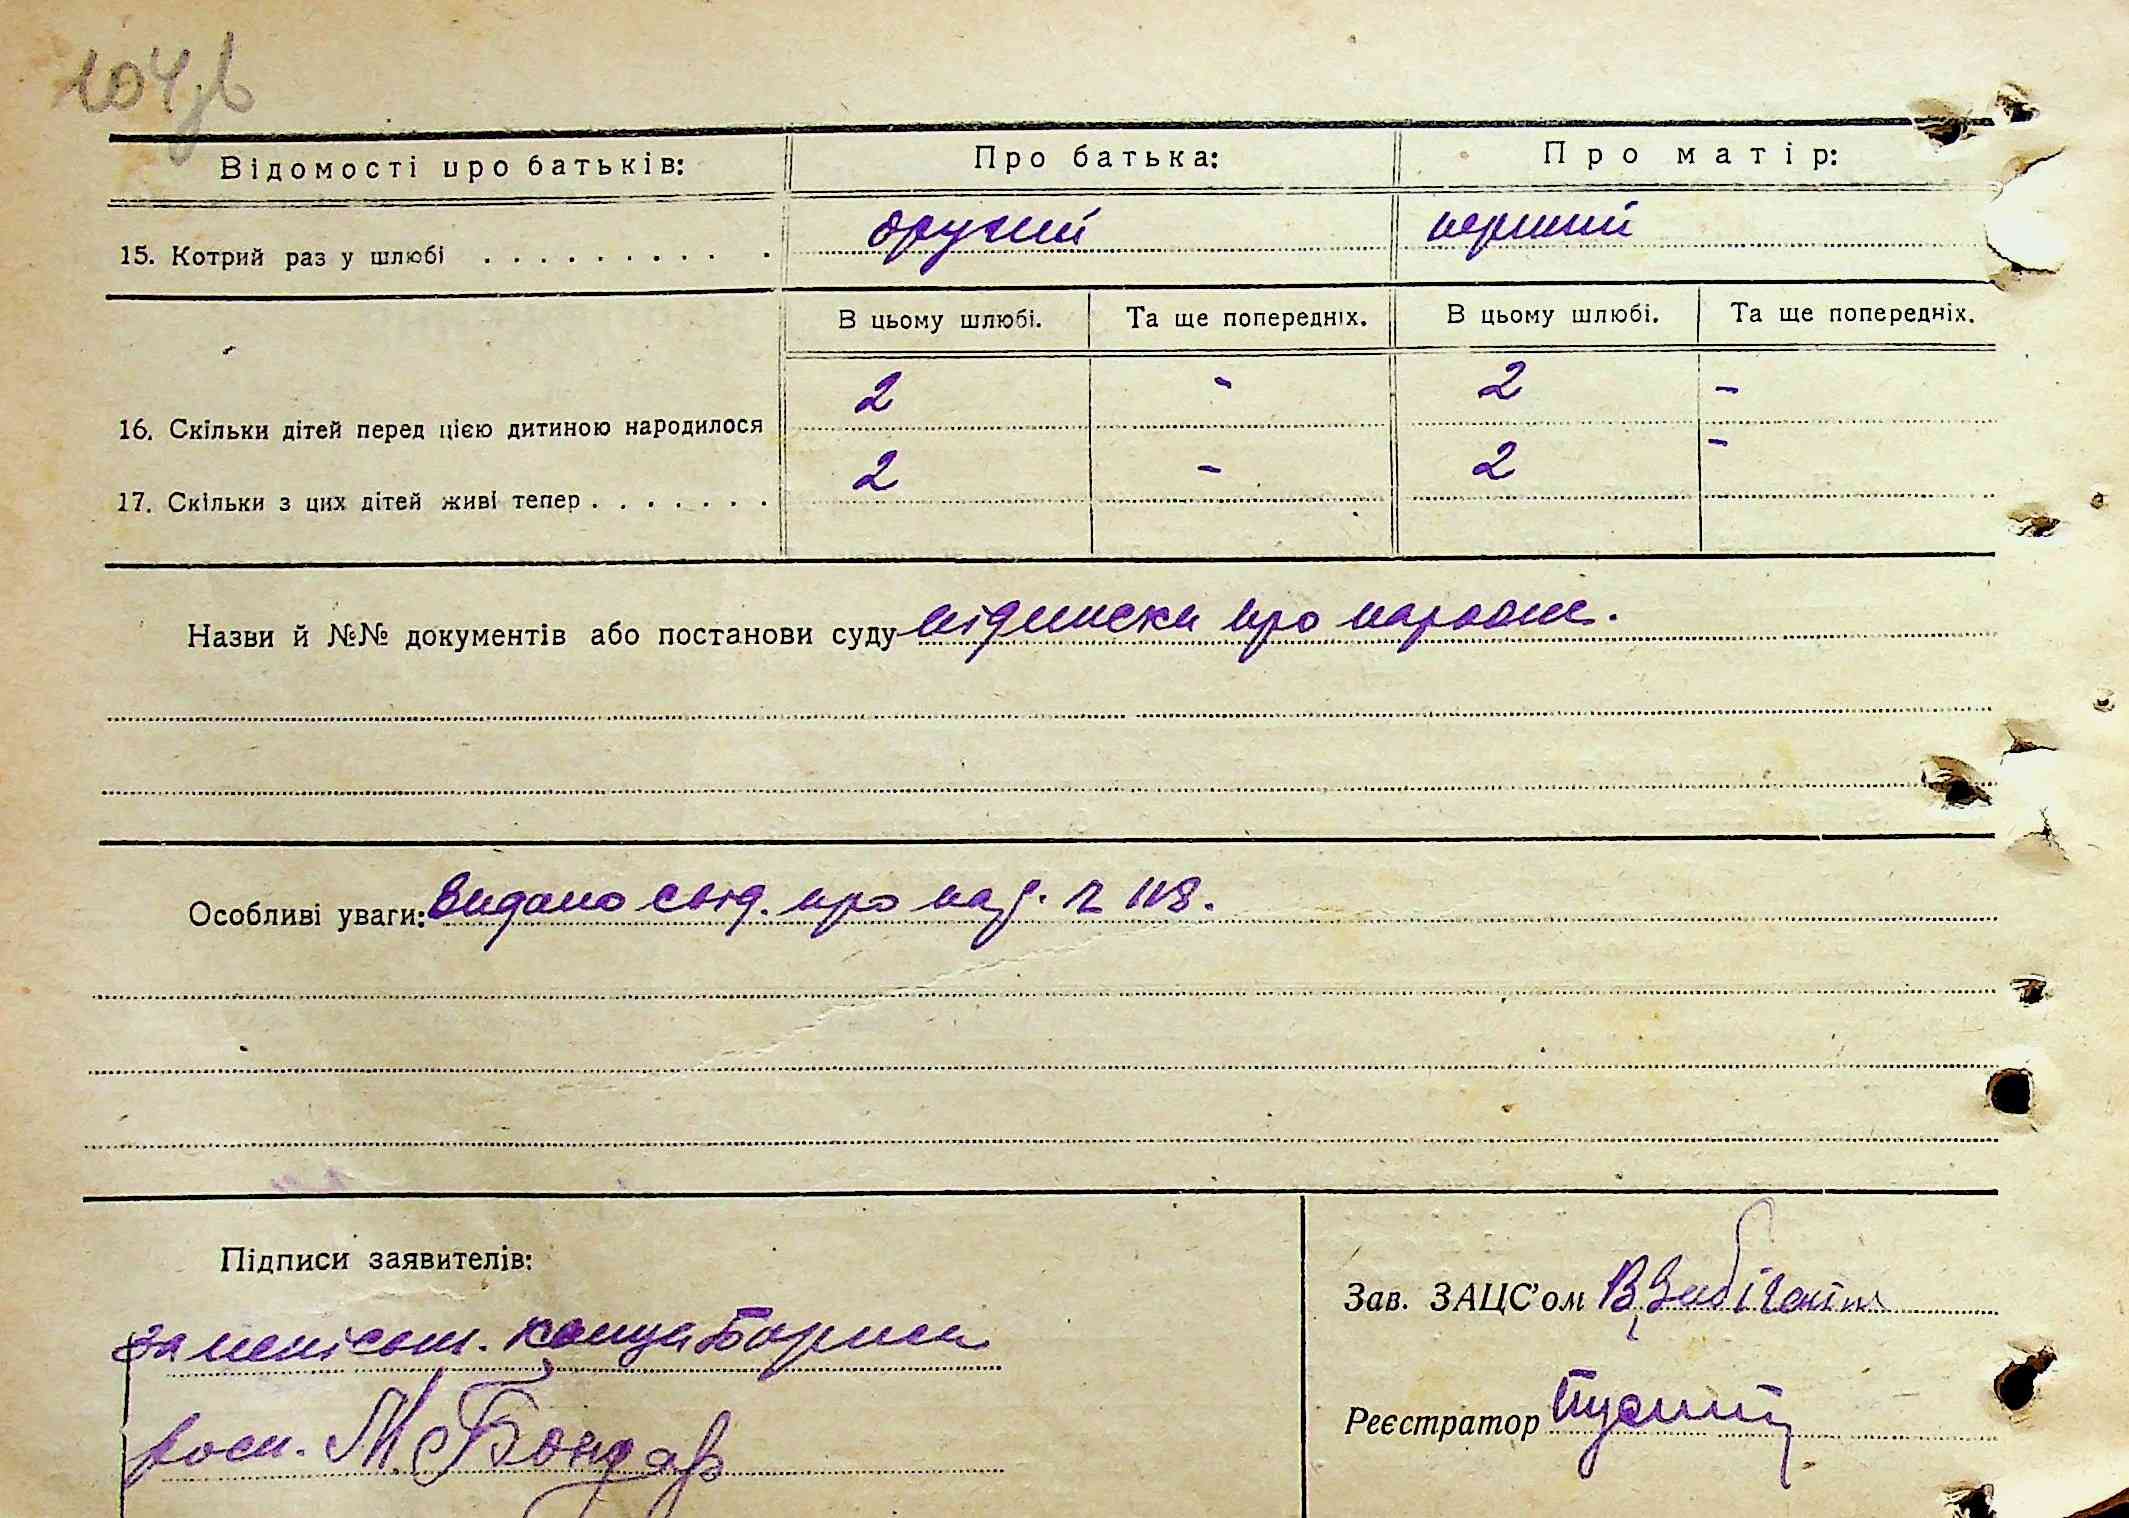 104
Відомості про батьків:
Про батька:
Про матір:
15. Котрий раз у шлюбі . . . . . . . . . .
другий
перший
В цьому шлюбі.
Та ще попередніх.
В цьому шлюбі.
Та ще попередніх.
16. Скільки дітей перед цією дитиною народилося
2 - 2 -
17. Скільки з цих дітей живі тепер . . . . . . .
2 - 2 -
Назви й №№ документів або постанови суду підписки про народж.
Особливі уваги: Видано свід. про нар. 118.
Підписи заявителів:
Зав. ЗАЦС'ом В.
за неписьм. Бориса
Реєстратор
росп. М. Бондар